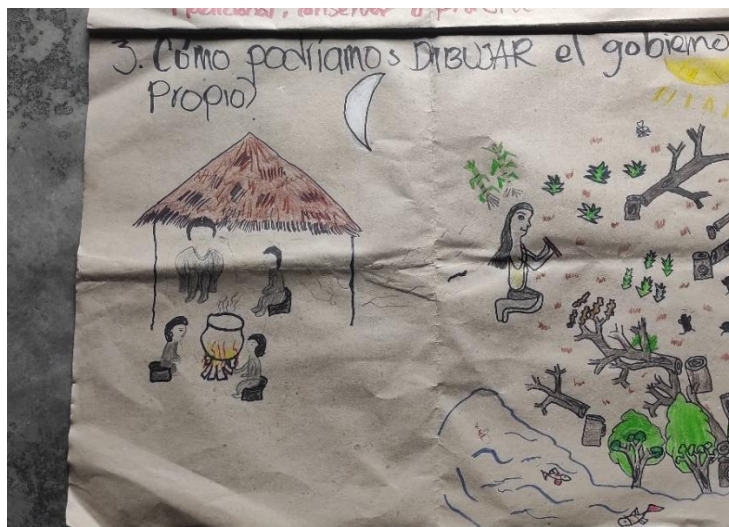 3. Cómo podríamos DIBUJAR el gobierno
Propio?